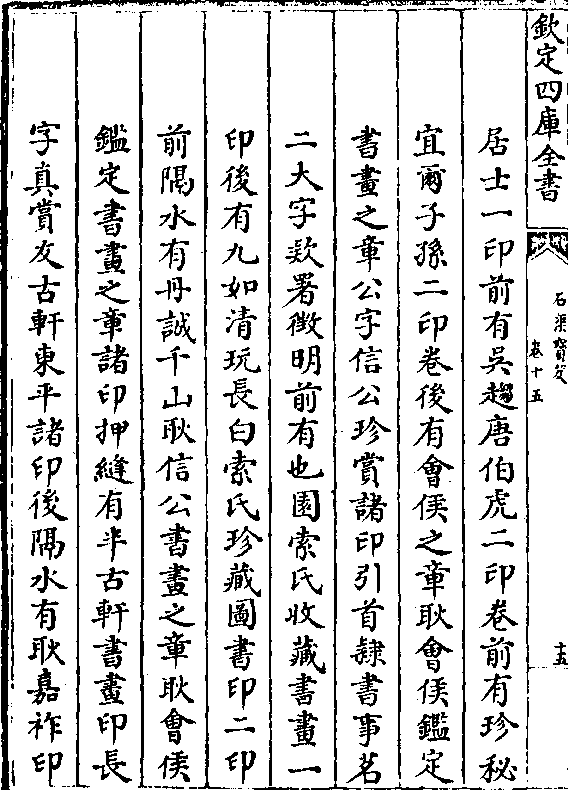 欽定四庫全書
石渠寶笈
卷十五
十五
居士一印前有吳趨唐伯虎二印卷前有珍秘
宜爾子孫二印卷後有會侯之章耿會侯鑑定
書畫之章公字信公珍賞諸印引首隸書事茗
二大字款署徵明前有也園索氏收藏書畫一
印後有九如清玩長白索氏珍藏圖書印二印
前隔水有丹誠千山耿信公書畫之章耿會侯
鑑定書畫之章諸印押縫有半古軒書畫印長
字真賞友古軒東平諸印後隔水有耿嘉祚印